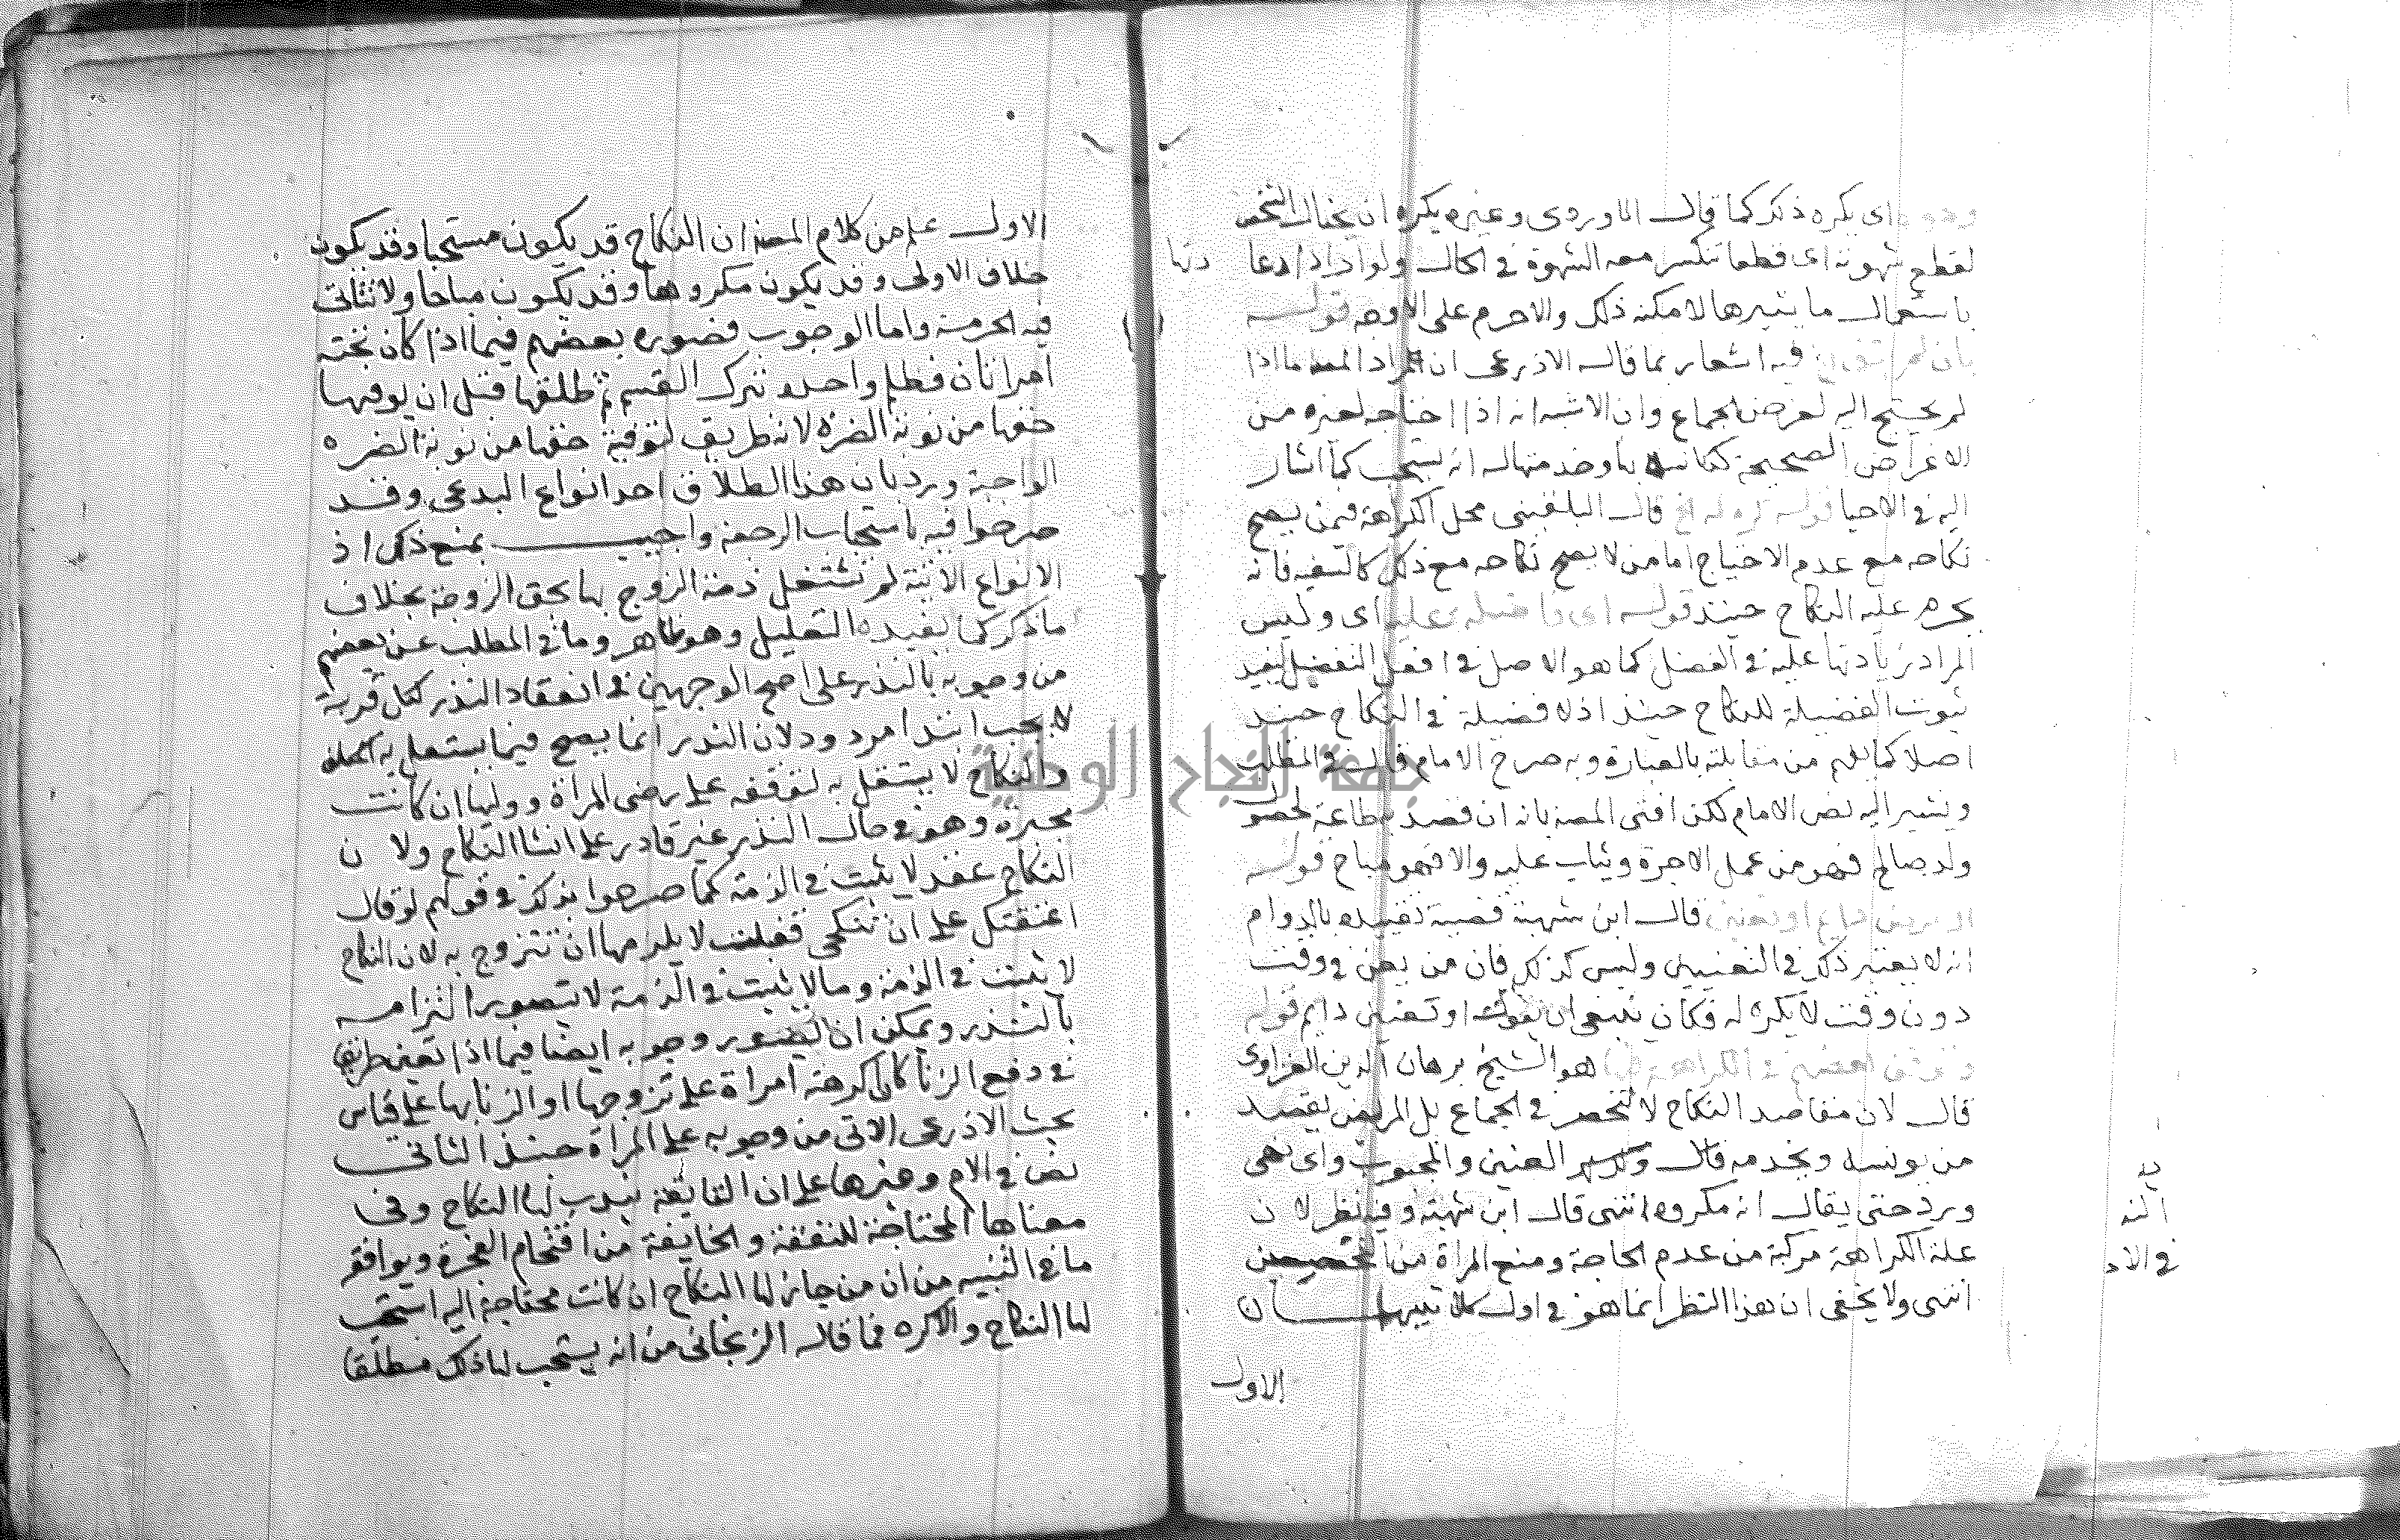 اى يكره ذكر كما قال الماوردى وغيره يكره ان يحتال الشخص
لقطع شهوته اى قطعا تنكسر معه الشهوة في الحال ولو اراد اذا دعا
دتها
باستعمال ما يثيرها لامكنه ذلك والاحرم على الاوجه قوله
فيه اشعار بما قاله الاذرعى ان المراد ما اذا
لم يحتج اليه لغرض الجماع وان الاشبه انه اذا احتاجه لغيره من
الاغراض الصحيحة انه يستحب كما اشار
اليه في الاحيا قوله كره له الخ قال البلقينى محل الكراهة فيمن يصح
نكاحه مع عدم الاحتياج اما من لا يصح نكاحه مع ذلك كالسفيه فانه
يحرم عليه النكاح حينئذ قوله اى وليس
المراد زيادتها عليه في الفضل كما هو الاصل في افعل التفضيل
ثبوت الفضيلة للنكاح حينئذ اذ لا فضيلة في النكاح حينئذ
اصلا كما يعلم من مقابلته بالعبارة وبه صرح الامام قال في المطلب
ويشير اليه نص الامام لكن افتى المصنف بانه ان قصد به طاعة لحصول
ولد صالح فهو من عمل الاخرة ويثاب عليه والا فهو مباح قوله
قال ابن شهبة قضية تقييده بالدوام
انه لا يعتبر ذلك في التعنين وليس كذلك فان من يعن في وقت
دون وقت لا يكره له فكان ينبغى ان يقول او تعنين دايم قوله
هو الشيخ برهان الدين الفزاوى
قال لان مقاصد النكاح لا تنحصر في الجماع بل المريض يقصد
من يونسه ويخدمه قال وكذلك العنين والمجبوب واى نهى
ورد حتى يقال انه مكروه انتهى قال ابن شهبة وفيه نظر لان
علة الكراهة مركبة من عدم الحاجة ومنع المراة من التحصين
انتهى ولا يخفى ان هذا النظر انما هو في اول كلا تنبيهان
الاول
الاول علم من كلام المصنف ان النكاح قد يكون مستحبا وقد يكون
خلاف الاولى وقد يكون مكروها وقد يكون مباحا ولا تتاتى
فيه الحرمة واما الوجوب فصوره بعضهم فيما اذا كان تحته
امراتان فظلم واحدة بترك القسم ثم طلقها قبل ان يوفيها
حقها من نوبة الضرة لانه طريق لتوفية حقها من نوبة الضرة
الواجبة ورد بان هذا الطلاق احد انواع البدعى وقد
صرحوا فيه باستحباب الرجعة واجيب بمنع ذلك اذ
الانواع الاتية لم تشتغل ذمة الزوج بها بحق الزوجة بخلاف
ما ذكر كما يفيده التعليل وهو ظاهر وما في المطلب عن بعضهم
من وجوبه بالنذر على اصح الوجهين في انعقاد النذر كتل قربة
لا يجب ابتدا مردود لان النذر انما يصح فيما يستقل به المكلف
والنكاح لا يستقل به لتوقفه على رضى المراة ووليها ان كانت
مجبرة وهو في حال النذر غير قادر على انشا النكاح ولان
النكاح عقد لا يثبت في الذمة كما صرحوا بذلك في قولهم لو قال
اعتقتك على ان تنكحى فقبلت لا يلزمها ان تتزوج به لان النكاح
لا يثبت في الذمة وما لا يثبت في الذمة لا يتصور التزامه
بالنذر ويمكن ان يتصور وجوبه ايضا فيما اذا تعين طريقا
في دفع الزنا كان اكرهته امراة على تزوجها او الزنا بها على قياس
بحث الاذرعى الاتى من وجوبه على المراة حينئذ الثانى
نص في الام وغيرها على ان التايقة يندب لها النكاح وفى
معناها المحتاجة للنفقة والخايفة من اقتحام الفجرة ويوافقه
ما في التنبيه من ان من جاز لها النكاح ان كانت محتاجة اليه استحب
لها النكاح والا كره فما قاله الزنجانى من انه يستحب لها ذلك مطلقا
جامعة النجاح الوطنية